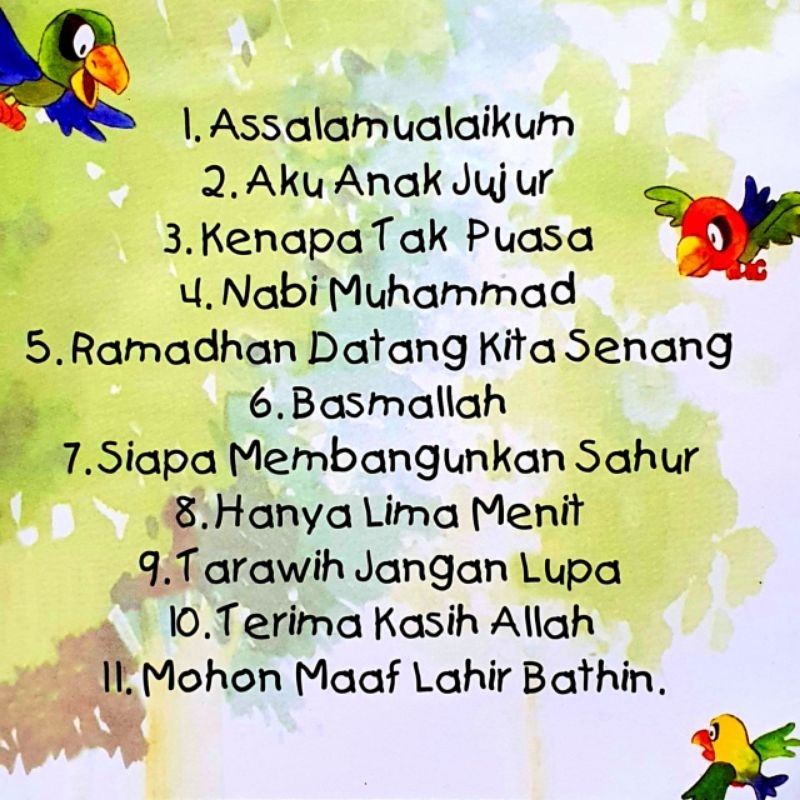 1. Assalamualaikum
2. Aku Anak Jujur
3. Kenapa Tak Puasa
4. Nabi Muhammad
5. Ramadhan Datang Kita Senang
6. Basmallah
7. Siapa Membangunkan Sahur
8. Hanya Lima Menit
9. Tarawih Jangan Lupa
10. Terima Kasih Allah
11. Mohon Maaf Lahir Bathin.